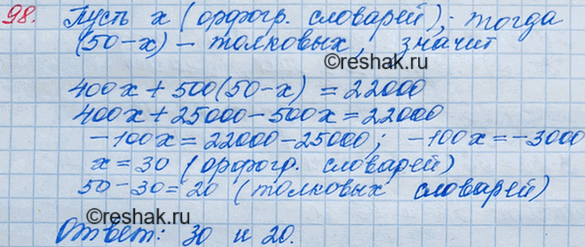 98. Пусть x (орфогр. словарей); тогда
(50-x) - толковых, значит
400x + 500(50-x) = 22000
400x + 25000 - 500x = 22000
-100x = 22000 - 25000; -100x = -3000
x = 30 (орфогр. словарей)
50 - 30 = 20 (толковых словарей)
Ответ: 30 и 20.
©reshak.ru